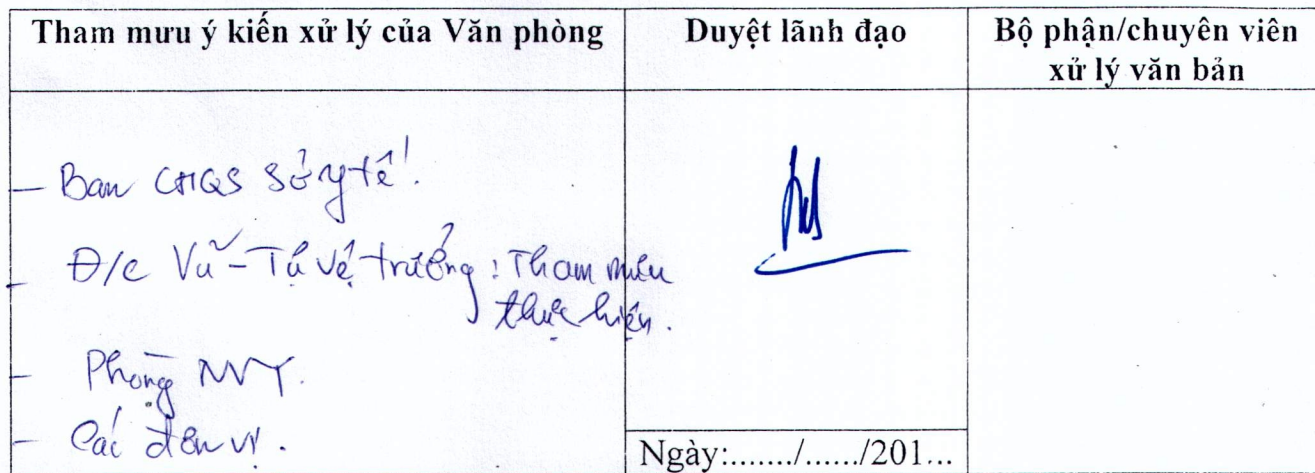 Tham mưu ý kiến xử lý của Văn phòng
Duyệt lãnh đạo
Bộ phận/chuyên viên
xử lý văn bản
- Ban CHQS Sở y tế.
- Đ/c Vũ - Tự vệ trưởng: Tham mưu
thực hiện.
- Phòng NVY.
- Các đơn vị.
Ngày:....../....../201...